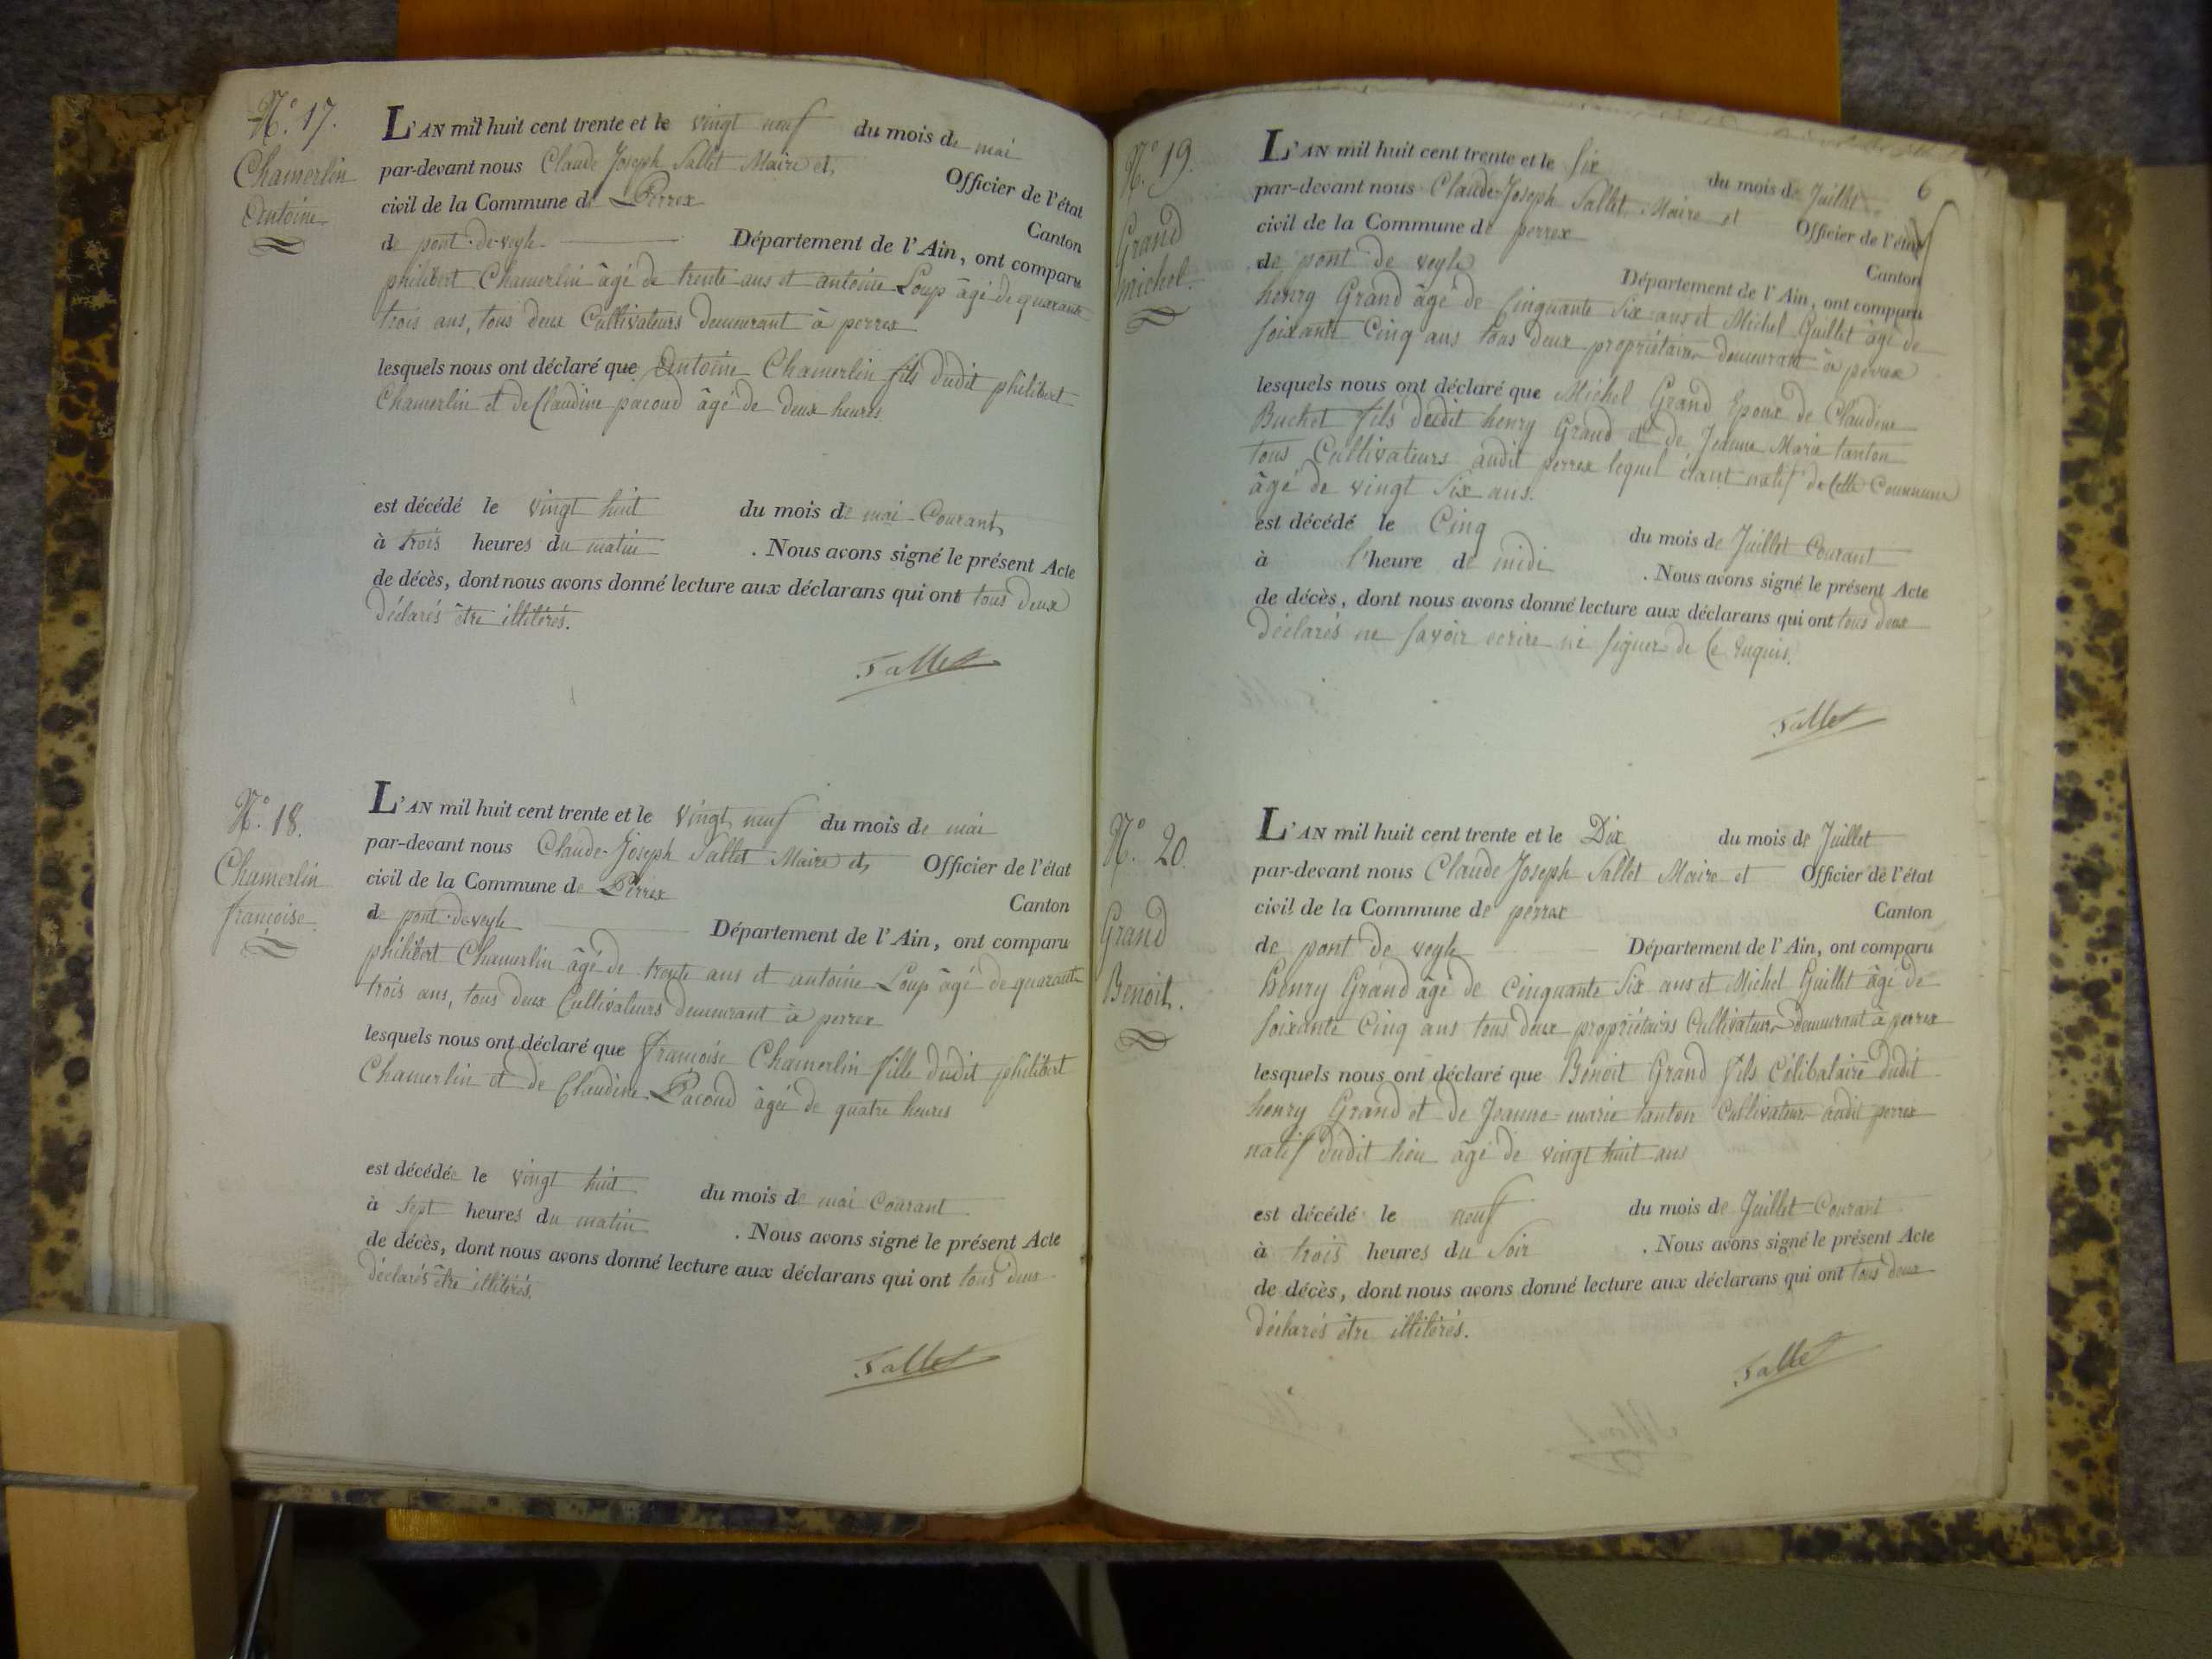 N.° 17.
Chamerlin
Antoine
L'AN mil huit cent trente et le vingt neuf du mois de mai
par-devant nous Claude Joseph Sallet Maire et Officier de l'état
civil de la Commune de Perrex Canton
de pont-de-veyle Département de l'Ain, ont comparu
philibert Chamerlin âgé de trente ans et antoine Loup âgé de quarante
trois ans, tous deux Cultivateurs demeurant à perrex
lesquels nous ont déclaré que Antoine Chamerlin fils dudit philibert
Chamerlin et de Claudine pacoud âgé de deux heures
est décédé le vingt huit du mois de mai Courant
à trois heures du matin . Nous avons signé le présent Acte
de décès, dont nous avons donné lecture aux déclarans qui ont tous deux
déclarés être illitérés.
Sallet
N.° 18.
Chamerlin
françoise
L'AN mil huit cent trente et le vingt neuf du mois de mai
par-devant nous Claude-Joseph Sallet Maire et Officier de l'état
civil de la Commune de Perrex Canton
de pont-de veyle Département de l'Ain, ont comparu
philibert Chamerlin âgé de trente ans et antoine Loup âgé de quarante
trois ans, tous deux Cultivateurs demeurant à perrex
lesquels nous ont déclaré que françoise Chamerlin fille dudit philibert
Chamerlin et de Claudine Pacoud âgée de quatre heures
est décédée le vingt huit du mois de mai Courant
à sept heures du matin . Nous avons signé le présent Acte
de décès, dont nous avons donné lecture aux déclarans qui ont tous deux
déclarés être illitérés.
Sallet
6
N.° 19.
Grand
michel.
L'AN mil huit cent trente et le six du mois de Juillet
par-devant nous Claude-Joseph Sallet Maire et Officier de l'état
civil de la Commune de perrex Canton
de pont de veyle Département de l'Ain, ont comparu
henry Grand âgé de Cinquante Six ans et Michel Guillet âgé de
soixante Cinq ans tous deux propriétaires demeurant à perrex
lesquels nous ont déclaré que Michel Grand Epoux de Claudine
Buchet fils dudit henry Grand et de Jeanne Marie tanton
tous Cultivateurs audit perrex lequel étant natif de Cette Commune
âgé de vingt Six ans.
est décédé le Cinq du mois de Juillet Courant
à l'heure de midi . Nous avons signé le présent Acte
de décès, dont nous avons donné lecture aux déclarans qui ont tous deux
déclarés ne savoir ecrire ni signer de Ce Enquis.
Sallet
N.° 20.
Grand
Benoit.
L'AN mil huit cent trente et le Dix du mois de Juillet
par-devant nous Claude Joseph Sallet Maire et Officier de l'état
civil de la Commune de perrex Canton
de pont de veyle Département de l'Ain, ont comparu
henry Grand âgé de Cinquante Six ans et Michel Guillet âgé de
soixante Cinq ans tous deux propriétaires Cultivateurs demeurant à perrex
lesquels nous ont déclaré que Benoit Grand fils Célibataire dudit
henry Grand et de Jeanne-marie tanton Cultivateur audit perrex
natif dudit lieu âgé de vingt huit ans
est décédé le neuf du mois de Juillet Courant
à trois heures du Soir . Nous avons signé le présent Acte
de décès, dont nous avons donné lecture aux déclarans qui ont tous deux
déclarés être illitérés.
Sallet